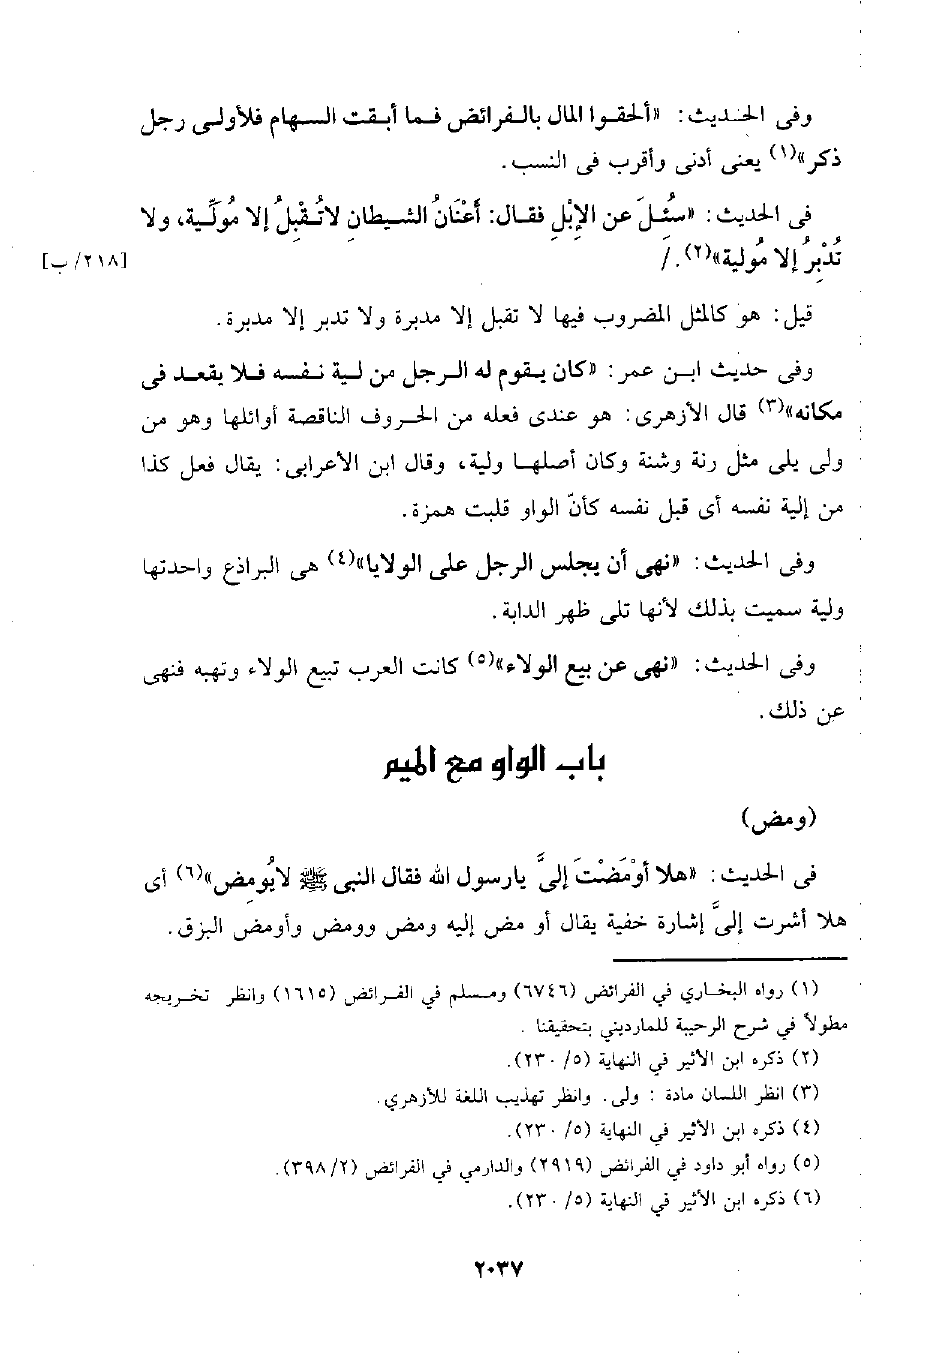 وفى الحديث: «ألحقوا المال بالفرائض فما أبقت السهام فلأولى رجل
ذكر»(١) يعنى أدنى وأقرب فى النسب.
فى الحديث: «سُئِلَ عن الإبْلِ فقال: أعْنَانُ الشيطانِ لاتُقْبِلُ إلا مُولِّية، ولا
تُدْبِرُ إلا مُولية»(٢)./
[٢١٨/ ب]
قيل: هو كالمثل المضروب فيها لا تقبل إلا مدبرة ولا تدبر إلا مدبرة.
وفى حديث ابن عمر: «كان يقوم له الرجل من لية نفسه فلا يقعد فى
مكانه»(٣) قال الأزهرى: هو عندى فعله من الحروف الناقصة أوائلها وهو من
ولى يلى مثل رنة وشنة وكان أصلها ولية، وقال ابن الأعرابى: يقال فعل كذا
من إلية نفسه أى قبل نفسه كأنّ الواو قلبت همزة.
وفى الحديث: «نهى أن يجلس الرجل على الولايا»(٤) هى البراذع واحدتها
ولية سميت بذلك لأنها تلى ظهر الدابة.
وفى الحديث: «نهى عن بيع الولاء»(٥) كانت العرب تبيع الولاء وتهبه فنهى
عن ذلك.
باب الواو مع الميم
(ومض)
فى الحديث: «هلا أوْمَضْتَ إلىَّ يارسول الله فقال النبى ﷺ لايُومِض»(٦) أى
هلا أشرت إلىَّ إشارة خفية يقال أو مض إليه ومض وومض وأومض البزق.
(١) رواه البخاري في الفرائض (٦٧٤٦) ومسلم في الفرائض (١٦١٥) وانظر تخريجه
مطولاً في شرح الرحيبة للمارديني بتحقيقنا .
(٢) ذكره ابن الأثير في النهاية (٥/ ٢٣٠).
(٣) انظر اللسان مادة : ولى. وانظر تهذيب اللغة للأزهري.
(٤) ذكره ابن الأثير في النهاية (٥/ ٢٣٠).
(٥) رواه أبو داود في الفرائض (٢٩١٩) والدارمي في الفرائض (٢/ ٣٩٨).
(٦) ذكره ابن الأثير في النهاية (٥/ ٢٣٠).
٢٠٣٧